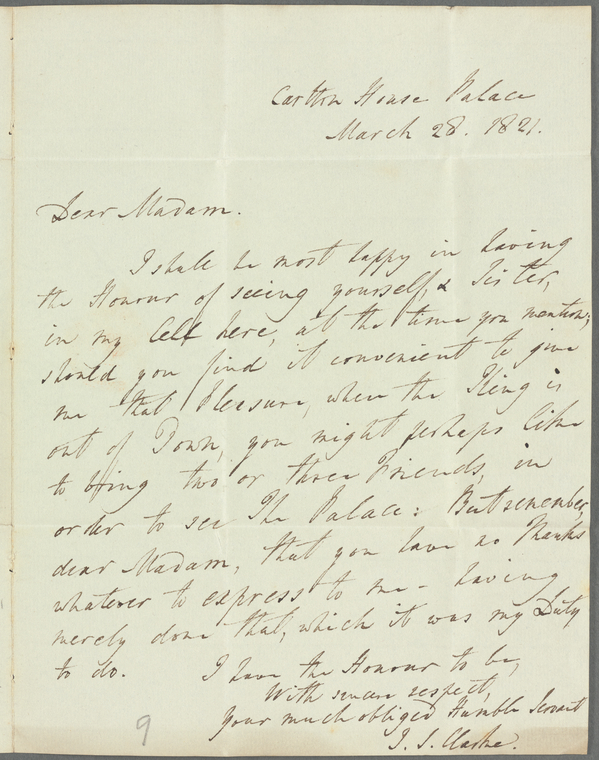 Carlton House Palace
March 28. 1821.
Dear Madam.
I shall be most happy in having
the Honour of seeing yourself, & Sister,
in my Cell here, at the time you mention;
should you find it convenient to give
me that Pleasure, when the King is
out of Town, you might perhaps like
to bring two or three Friends, in
order to see The Palace: But remember,
dear Madam, that you have no Thanks
whatever to express to me - having
merely done that, which it was my Duty
to do. I have the Honour to be,
With sincere respect,
Your much obliged Humble Servant
J. S. Clarke.
9